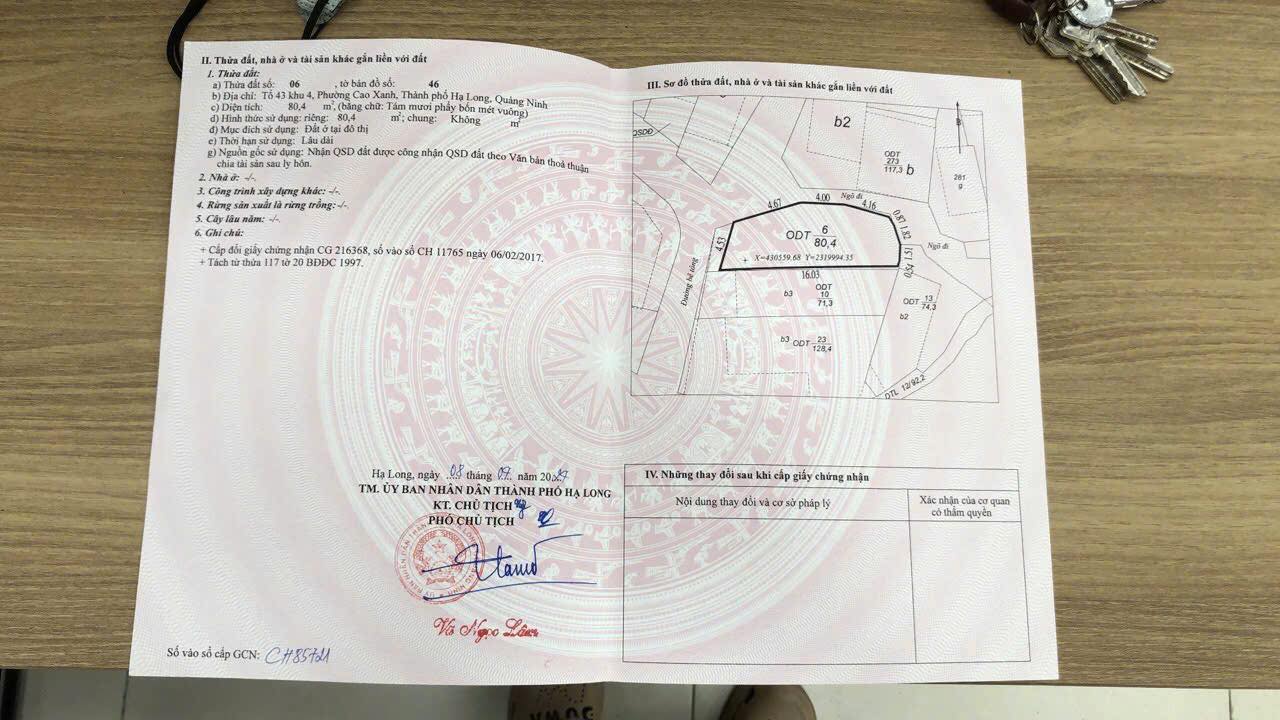 II. Thửa đất, nhà ở và tài sản khác gắn liền với đất
1. Thửa đất:
a) Thửa đất số: 06 , tờ bản đồ số: 46
b) Địa chỉ: Tổ 43 khu 4, Phường Cao Xanh, Thành phố Hạ Long, Quảng Ninh
c) Diện tích: 80,4 m², (bằng chữ: Tám mươi phẩy bốn mét vuông)
d) Hình thức sử dụng: riêng: 80,4 m²; chung: Không m²
đ) Mục đích sử dụng: Đất ở tại đô thị
e) Thời hạn sử dụng: Lâu dài
g) Nguồn gốc sử dụng: Nhận QSD đất được công nhận QSD đất theo Văn bản thoả thuận
chia tài sản sau ly hôn.
2. Nhà ở: -/-.
3. Công trình xây dựng khác: -/-.
4. Rừng sản xuất là rừng trồng: -/-.
5. Cây lâu năm: -/-.
6. Ghi chú:
+ Cấp đổi giấy chứng nhận CG 216368, số vào sổ CH 11765 ngày 06/02/2017.
+ Tách từ thửa 117 tờ 20 BĐĐC 1997.
Hạ Long, ngày 08 tháng 07 năm 20
TM. ỦY BAN NHÂN DÂN THÀNH PHỐ HẠ LONG
KT. CHỦ TỊCH
PHÓ CHỦ TỊCH
Võ Ngọc Lâm
Số vào sổ cấp GCN:
III. Sơ đồ thửa đất, nhà ở và tài sản khác gắn liền với đất
QSDĐ
B
b2
ODT
273
117,3
b
281
g
4.67
4.00
Ngõ đi
4.16
0.87
1.82
4.53
ODT 6
80,4
Ngõ đi
+ X=430559.68 Y=2319994.35
1.51
0.54
16.03
Đường bê tông
b3
ODT
10
71,3
ODT 13
74,3
b2
b3 ODT 23
128,4
DTL 12/92,2
IV. Những thay đổi sau khi cấp giấy chứng nhận
Nội dung thay đổi và cơ sở pháp lý
Xác nhận của cơ quan
có thẩm quyền